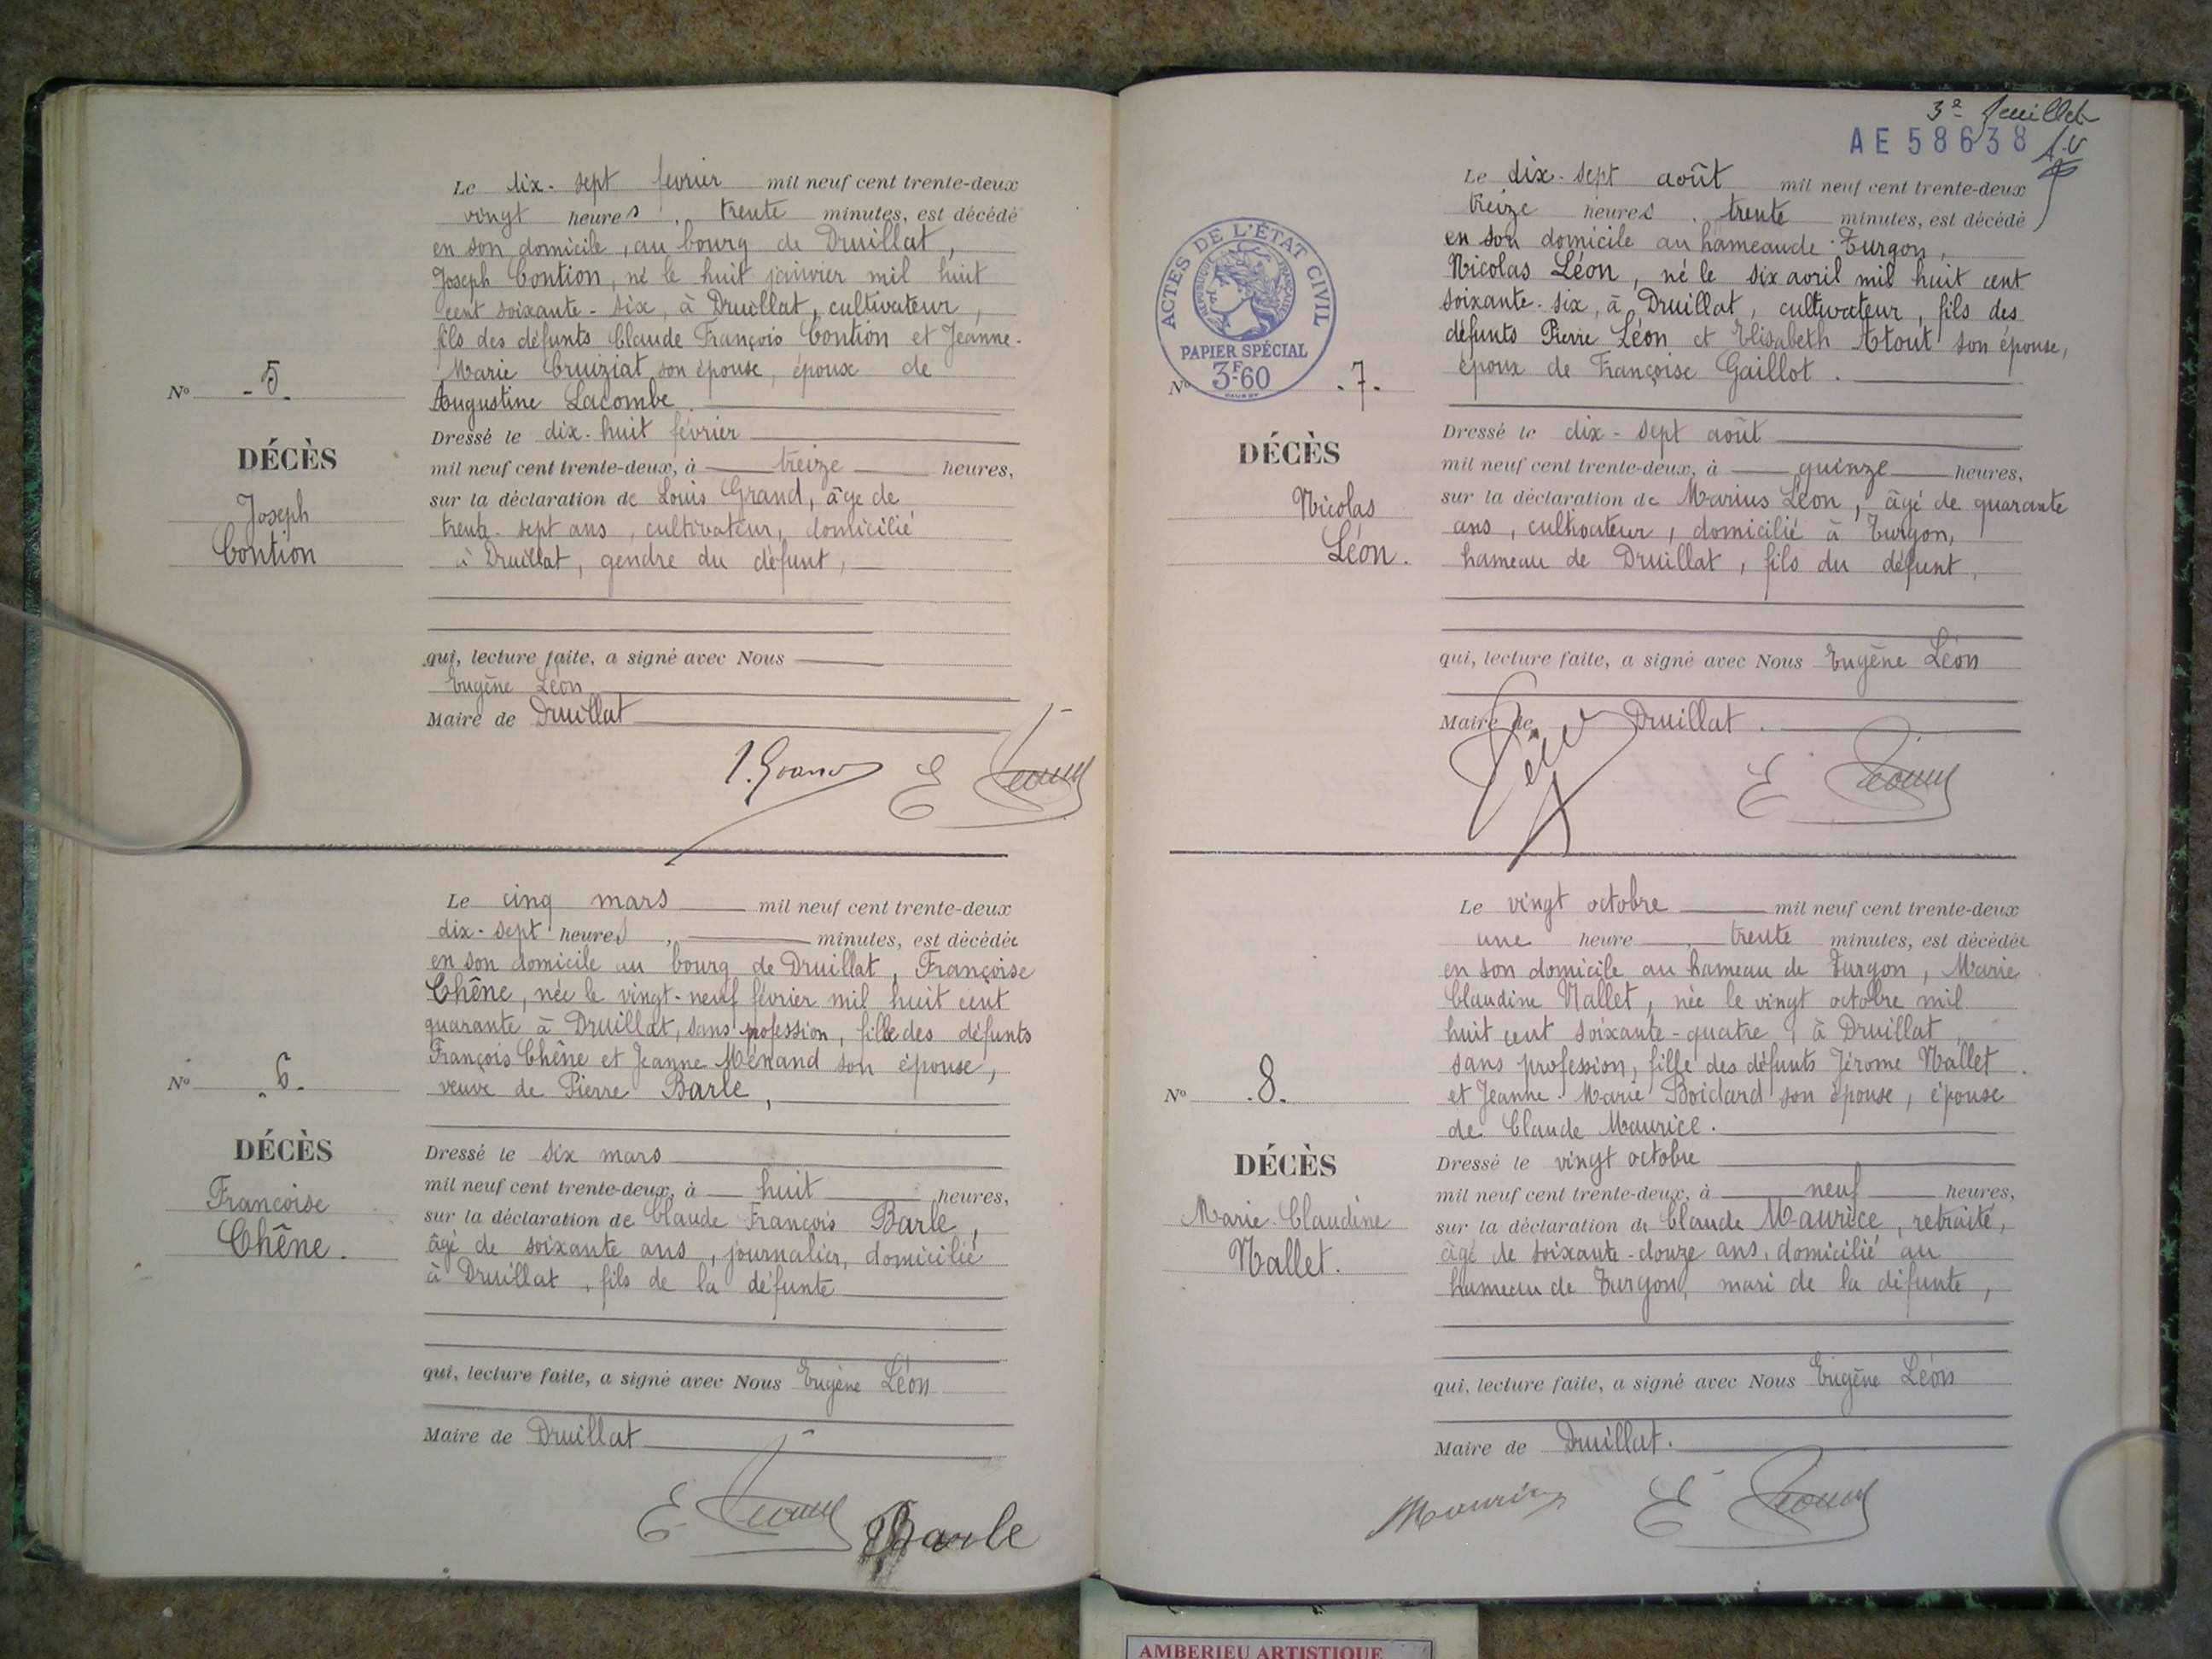 Le dix-sept février mil neuf cent trente-deux
vingt heures, trente minutes, est décédé
en son domicile, au bourg de Druillat,
Joseph Contion, né le huit janvier mil huit
cent soixante-six, à Druillat, cultivateur,
fils des défunts Claude François Contion et Jeanne-
Marie Cruiziat son épouse, époux de
Augustine Lacombe.
Nº -5.
DÉCÈS
Joseph
Contion
Dressé le dix-huit février
mil neuf cent trente-deux, à treize heures,
sur la déclaration de Louis Grand, âge de
trente-sept ans, cultivateur, domicilié
à Druillat, gendre du défunt,
qui, lecture faite, a signé avec Nous
Eugène Léon
Maire de Druillat
Le cinq mars mil neuf cent trente-deux
dix-sept heures, minutes, est décédée
en son domicile au bourg de Druillat, Françoise
Chêne, née le vingt-neuf février mil huit cent
quarante à Druillat, sans profession, fille des défunts
François Chêne et Jeanne Menand son épouse,
veuve de Pierre Barle,
Nº .6.
DÉCÈS
Francoise
Chêne.
Dressé le six mars
mil neuf cent trente-deux, à huit heures,
sur la déclaration de Claude François Barle,
âgé de soixante ans, journalier, domicilié
à Druillat, fils de la défunte
qui, lecture faite, a signé avec Nous Eugène Léon
Maire de Druillat
Barle
3e feuillet
AE 58638
Le dix-sept août mil neuf cent trente-deux
treize heures. trente minutes, est décédé
en son domicile au hameau de Turgon,
Nicolas Léon, né le six avril mil huit cent
soixante-six, à Druillat, cultivateur, fils des
défunts Pierre Léon et Elisabeth Atout son épouse,
époux de Françoise Gaillot.
ACTES DE L'ÉTAT CIVIL
RÉPUBLIQUE FRANÇAISE
PAPIER SPÉCIAL
3F60
Nº .7.
DÉCÈS
Nicolas
Léon.
Dressé le dix-sept août
mil neuf cent trente-deux, à quinze heures,
sur la déclaration de Marius Léon, âgé de quarante
ans, cultivateur, domicilié à Turgon,
hameau de Druillat, fils du défunt,
qui, lecture faite, a signé avec Nous Eugène Léon
Maire de Druillat.
Le vingt octobre mil neuf cent trente-deux
une heure, trente minutes, est décédée
en son domicile au hameau de Turgon, Marie
Claudine Nallet, née le vingt octobre mil
huit cent soixante-quatre, à Druillat,
sans profession, fille des défunts Jérome Nallet
et Jeanne-Marie Boidard son épouse, épouse
de Claude Maurice.
Nº .8.
DÉCÈS
Marie Claudine
Nallet.
Dressé le vingt octobre
mil neuf cent trente-deux, à neuf heures,
sur la déclaration de Claude Maurice, retraité,
âgé de soixante-douze ans, domicilié au
hameau de Turgon, mari de la défunte,
qui, lecture faite, a signé avec Nous Eugène Léon
Maire de Druillat.
AMBERIEU ARTISTIQUE